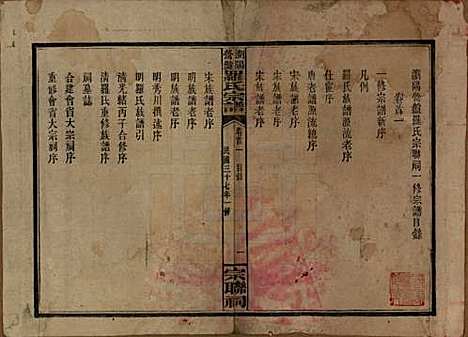 瀏陽營盤羅氏宗聯祠一修宗譜目錄
卷首一
一修宗譜新序
凡例
仕宦序
羅氏族譜源流總序
唐老譜源流老序
宋族譜老序
宋族譜老序
羅氏宗譜
卷首一 目錄 一
民國三十七年一修
宗聯祠
宋族譜老序
明秀川撰述序
明羅氏族譜老序
清光緒丙子合修序
清羅氏重修族譜序
祠墓誌
合建會省大宗祠序
重修會省大宗祠序